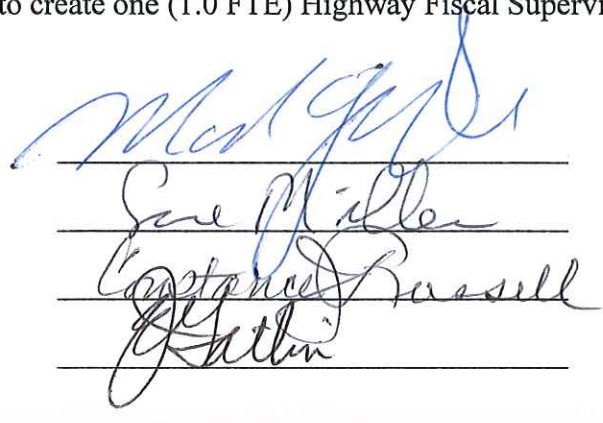 to create one (1.0 FTE) Highway Fiscal Supervi
Sue Miller
Constance J Russell
JGatlin